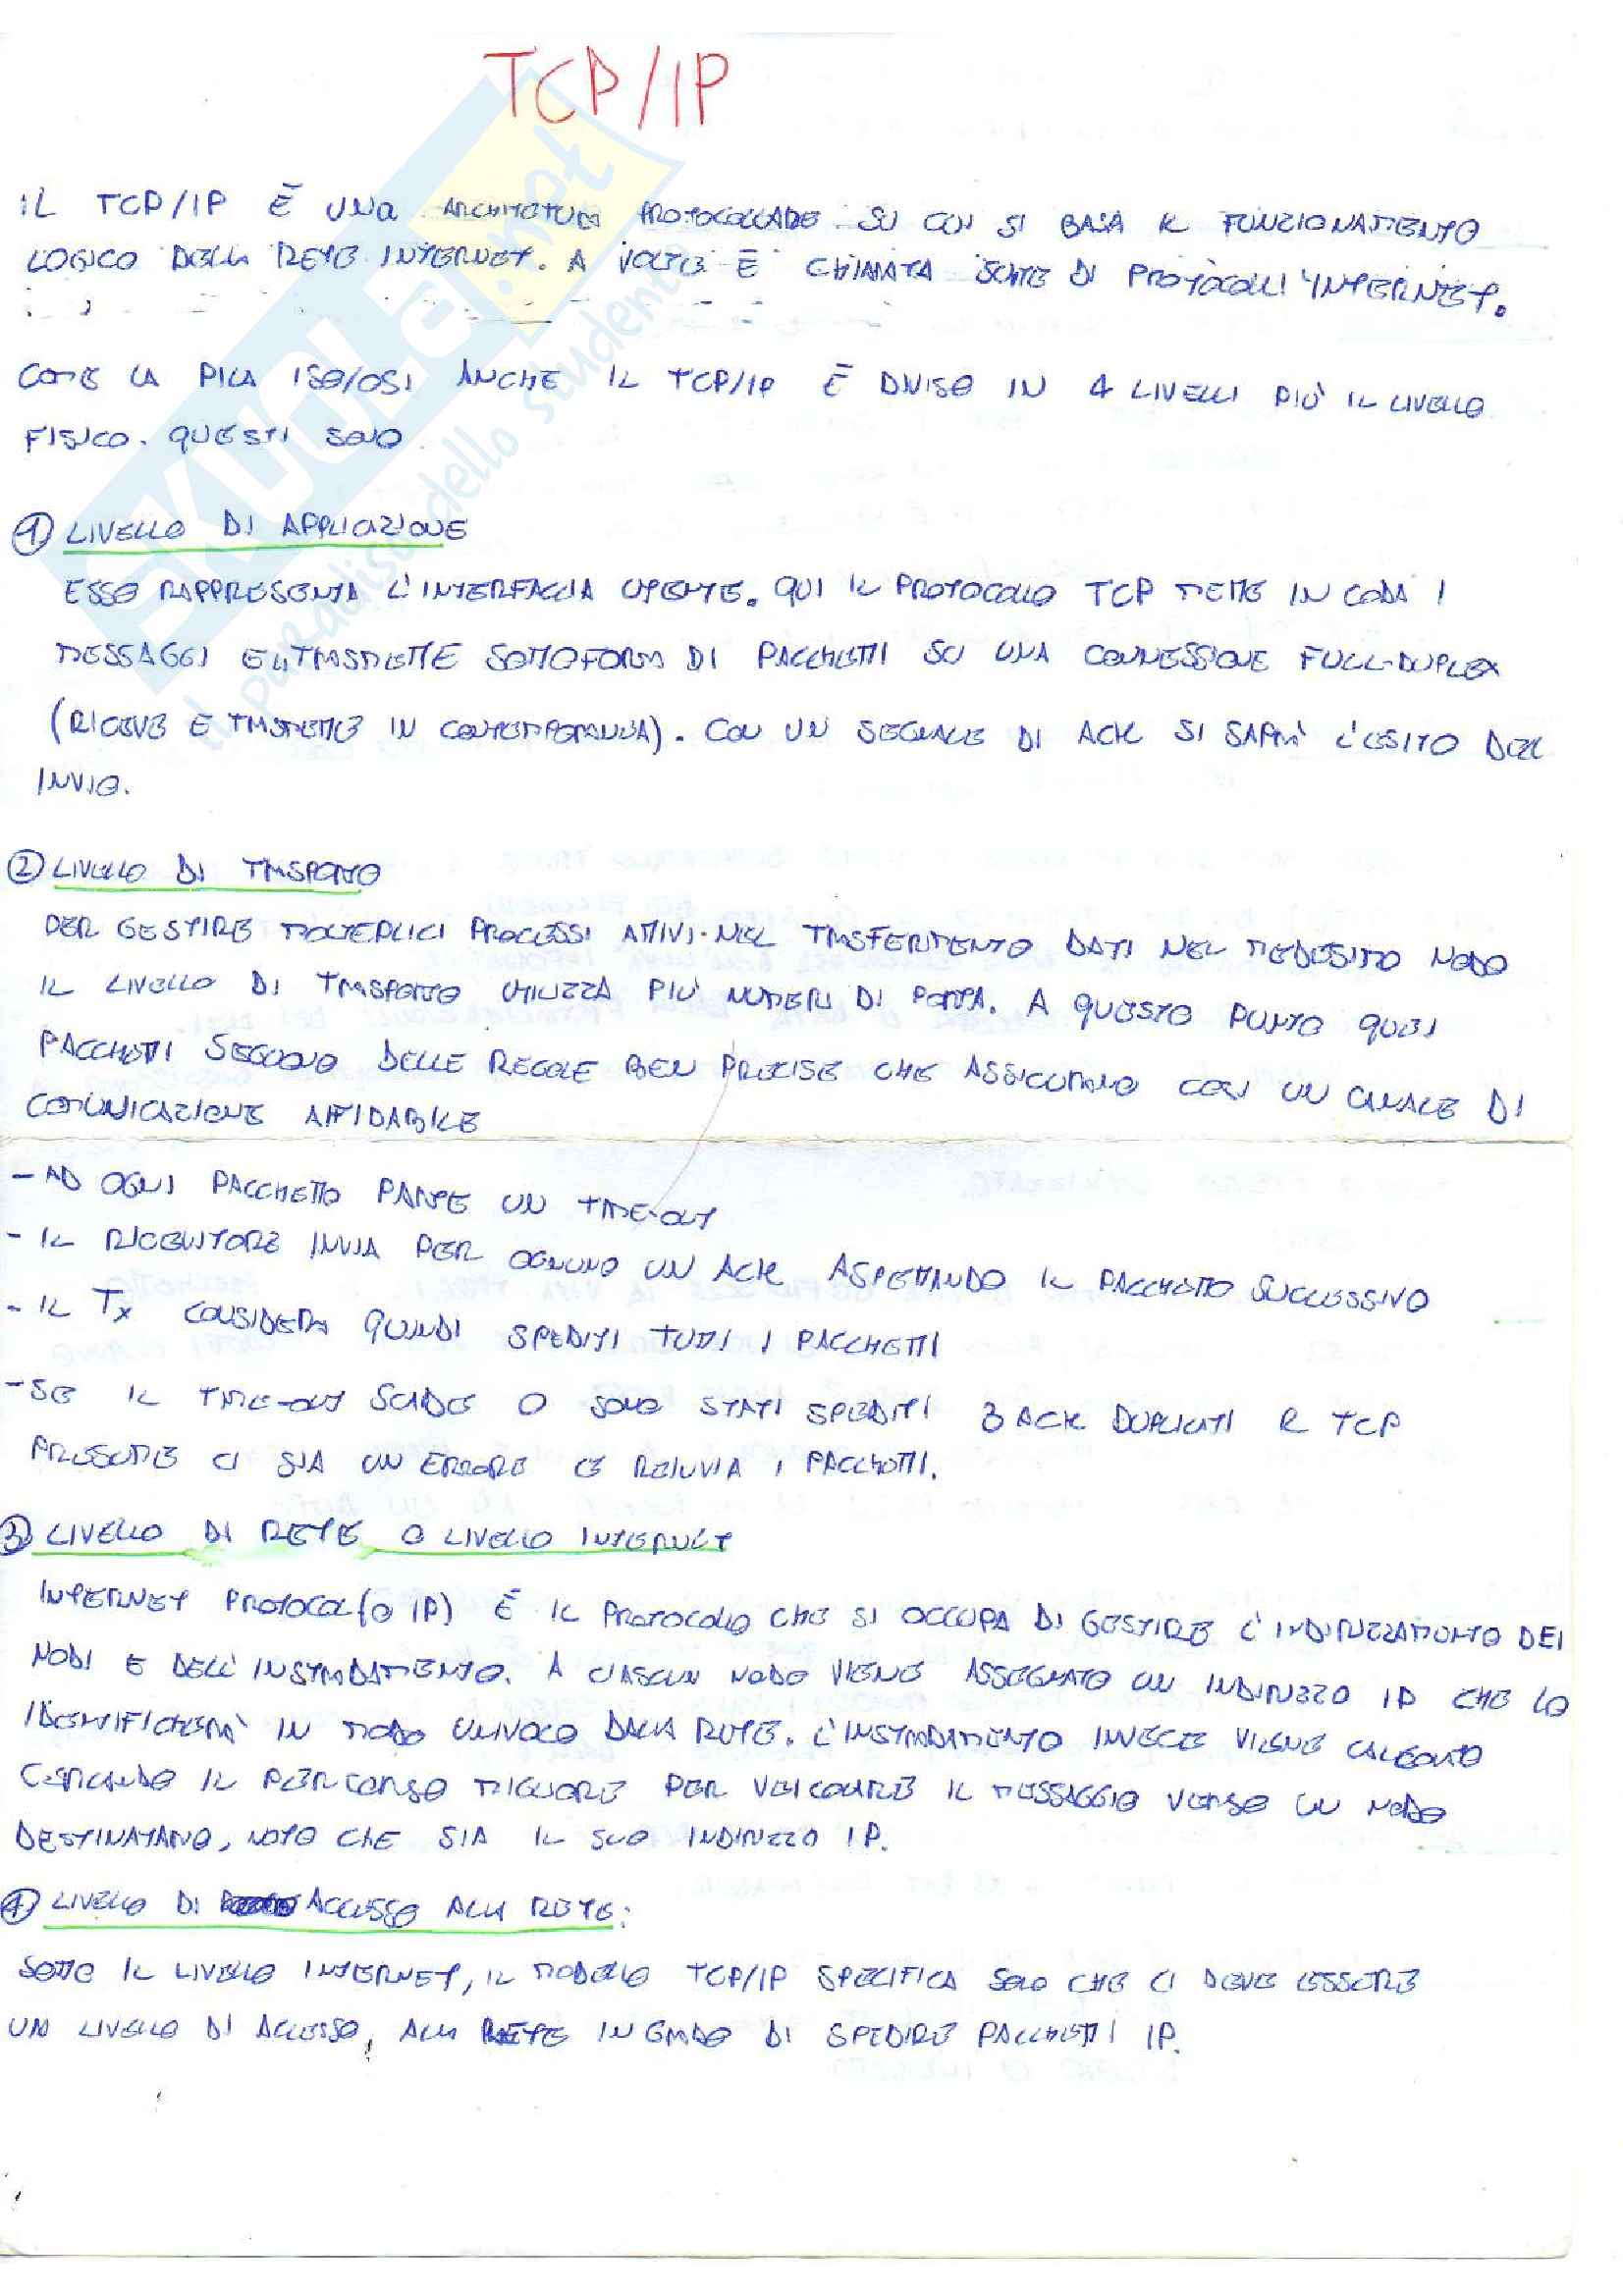 TCP/IP
IL TCP/IP È UNA ARCHITETTURA PROTOCOLLARE SU CUI SI BASA IL FUNZIONAMENTO
LOGICO DELLA RETE INTERNET. A VOLTE È CHIAMATA SUITE DI PROTOCOLLI INTERNET.
COME LA PILA ISO/OSI ANCHE IL TCP/IP È DIVISO IN 4 LIVELLI PIÙ IL LIVELLO
FISICO. QUESTI SONO
① LIVELLO DI APPLICAZIONE
ESSO RAPPRESENTA L'INTERFACCIA UTENTE. QUI IL PROTOCOLLO TCP METTE IN CODA I
MESSAGGI E LI TRASMETTE SOTTOFORMA DI PACCHETTI SU UNA CONNESSIONE FULL-DUPLEX
(RICEVE E TRASMETTE IN CONTEMPORANEA). CON UN SEGNALE DI ACK SI SAPRÀ L'ESITO DELL
INVIO.
② LIVELLO DI TRASPORTO
PER GESTIRE MOLTEPLICI PROCESSI ATTIVI NEL TRASFERIMENTO DATI NEL MEDESIMO NODO
IL LIVELLO DI TRASPORTO UTILIZZA PIÙ NUMERI DI PORTA. A QUESTO PUNTO QUEI
PACCHETTI SEGUONO DELLE REGOLE BEN PRECISE CHE ASSICURANO COSÌ UN CANALE DI
COMUNICAZIONE AFFIDABILE
- AD OGNI PACCHETTO PARTE UN TIME-OUT
- IL RICEVITORE INVIA PER OGNUNO UN ACK ASPETTANDO IL PACCHETTO SUCCESSIVO
- IL TX CONSIDERA QUINDI SPEDITI TUTTI I PACCHETTI
- SE IL TIME-OUT SCADE O SONO STATI SPEDITI 3 ACK DUPLICATI IL TCP
PRESUME CI SIA UN ERRORE E REINVIA I PACCHETTI.
③ LIVELLO DI RETE O LIVELLO INTERNET
INTERNET PROTOCOL (O IP) È IL PROTOCOLLO CHE SI OCCUPA DI GESTIRE L'INDIRIZZAMENTO DEI
NODI E DELL'INSTRADAMENTO. A CIASCUN NODO VIENE ASSEGNATO UN INDIRIZZO IP CHE LO
IDENTIFICHERÀ IN MODO UNIVOCO DALLA RETE. L'INSTRADAMENTO INVECE VIENE CALCOLATO
CERCANDO IL PERCORSO MIGLIORE PER VEICOLARE IL MESSAGGIO VERSO UN NODO
DESTINATARIO, NOTO CHE SIA IL SUO INDIRIZZO IP.
④ LIVELLO DI ACCESSO ALLA RETE:
SOTTO IL LIVELLO INTERNET, IL MODELLO TCP/IP SPECIFICA SOLO CHE CI DEVE ESSERE
UN LIVELLO DI ACCESSO, ALLA RETE IN GRADO DI SPEDIRE PACCHETTI IP.
SKUOLA.net
il paradiso dello studente